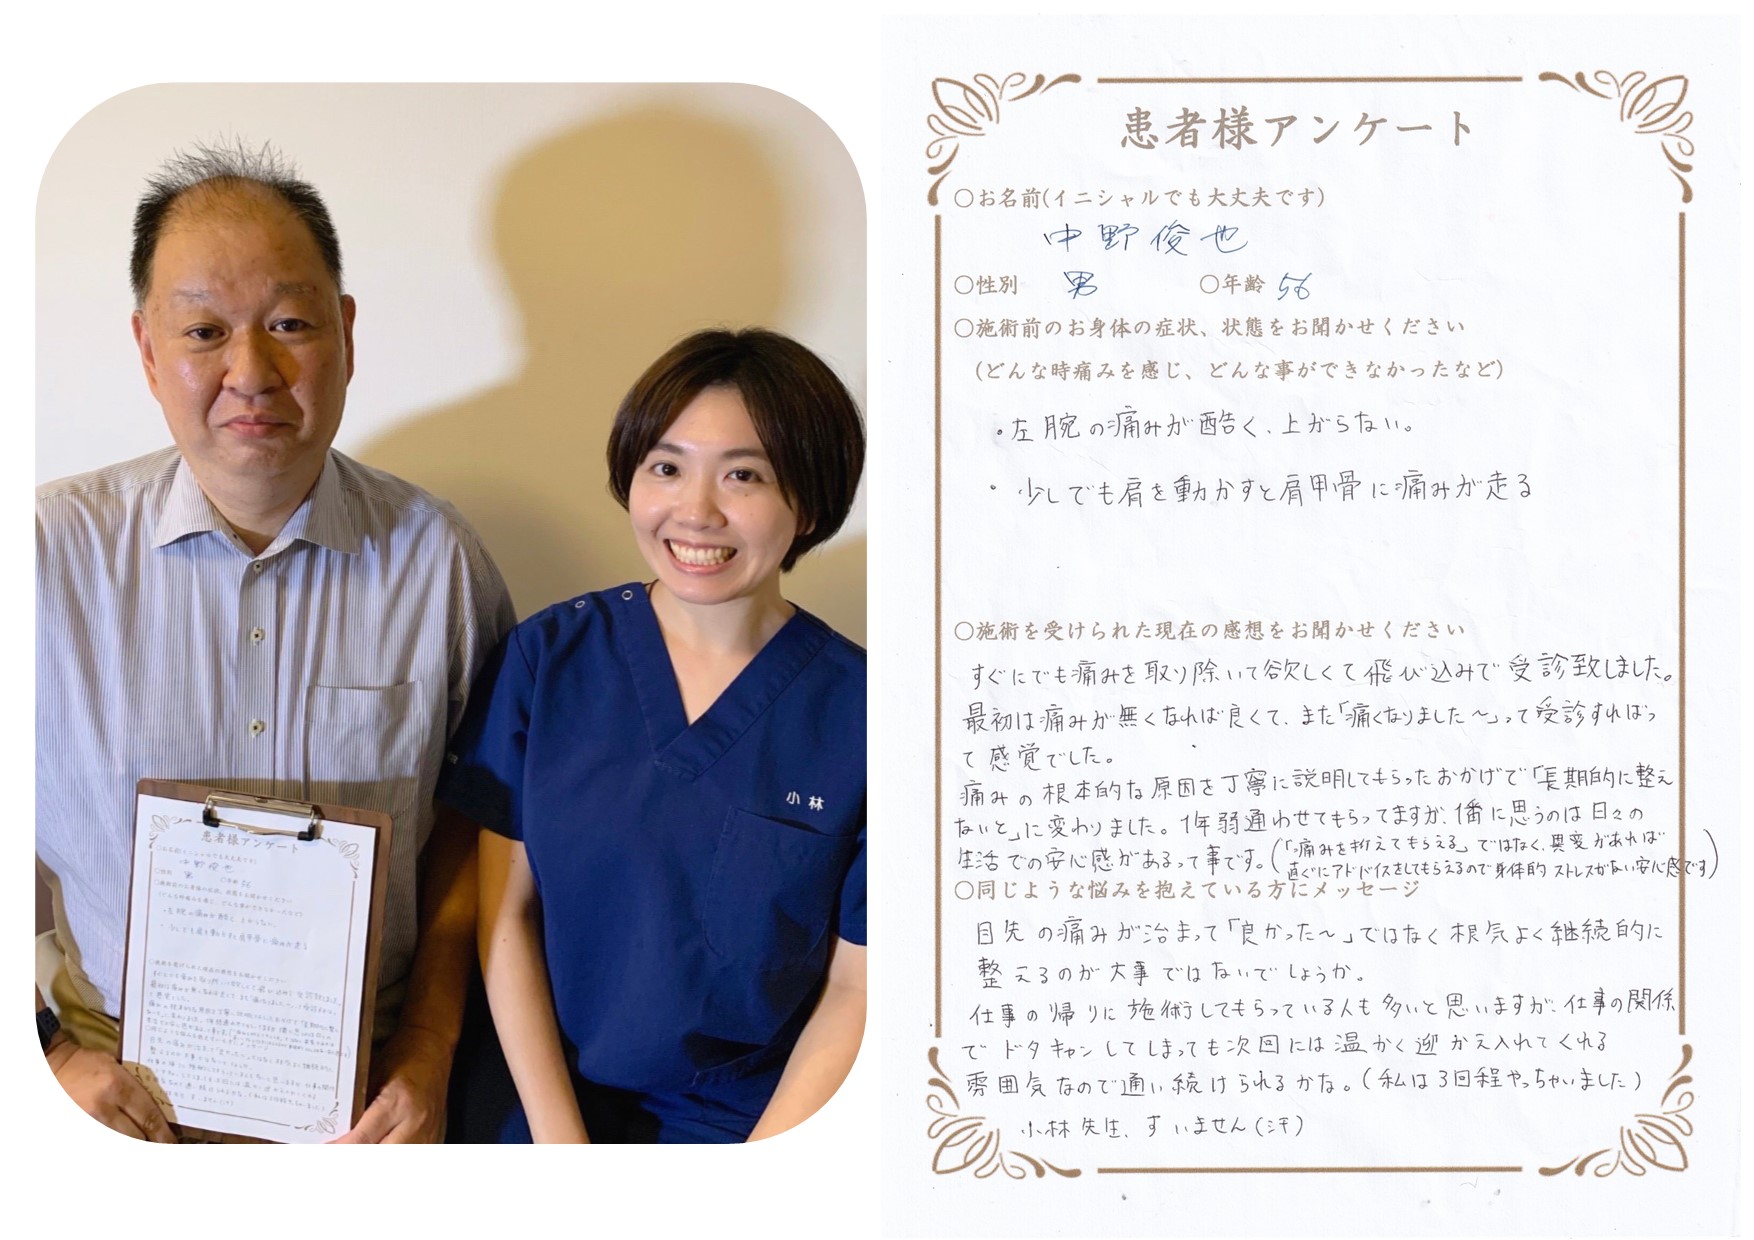 小林
患者様アンケート
○お名前(イニシャルでも大丈夫です)
中野俊也
○性別 男 ○年齢 56
○施術前のお身体の症状、状態をお聞かせください
(どんな時痛みを感じ、どんな事ができなかったなど)
・左腕の痛みが酷く、上がらない。
・少しでも肩を動かすと肩甲骨に痛みが走る
○施術を受けられた現在の感想をお聞かせください
すぐにでも痛みを取り除いて欲しくて飛び込みで受診致しました。
最初は痛みが無くなれば良くて、また「痛くなりました〜」って受診すればっ
て感覚でした。
痛みの根本的な原因を丁寧に説明してもらったおかげで「長期的に整え
ないと」に変わりました。1年弱通わせてもらってますが、1番に思うのは日々の
生活での安心感があるって事です。(「痛みを抑えてもらえる」ではなく、異変があれば
直ぐにアドバイスをしてもらえるので身体的ストレスがない安心感です)
○同じような悩みを抱えている方にメッセージ
目先の痛みが治まって「良かった〜」ではなく根気よく継続的に
整えるのが大事ではないでしょうか。
仕事の帰りに施術してもらっている人も多いと思いますが、仕事の関係
でドタキャンしてしまっても次回には温かく迎かえ入れてくれる
雰囲気なので通い続けられるかな。(私は3回程やっちゃいました)
小林先生、すいません(汗)